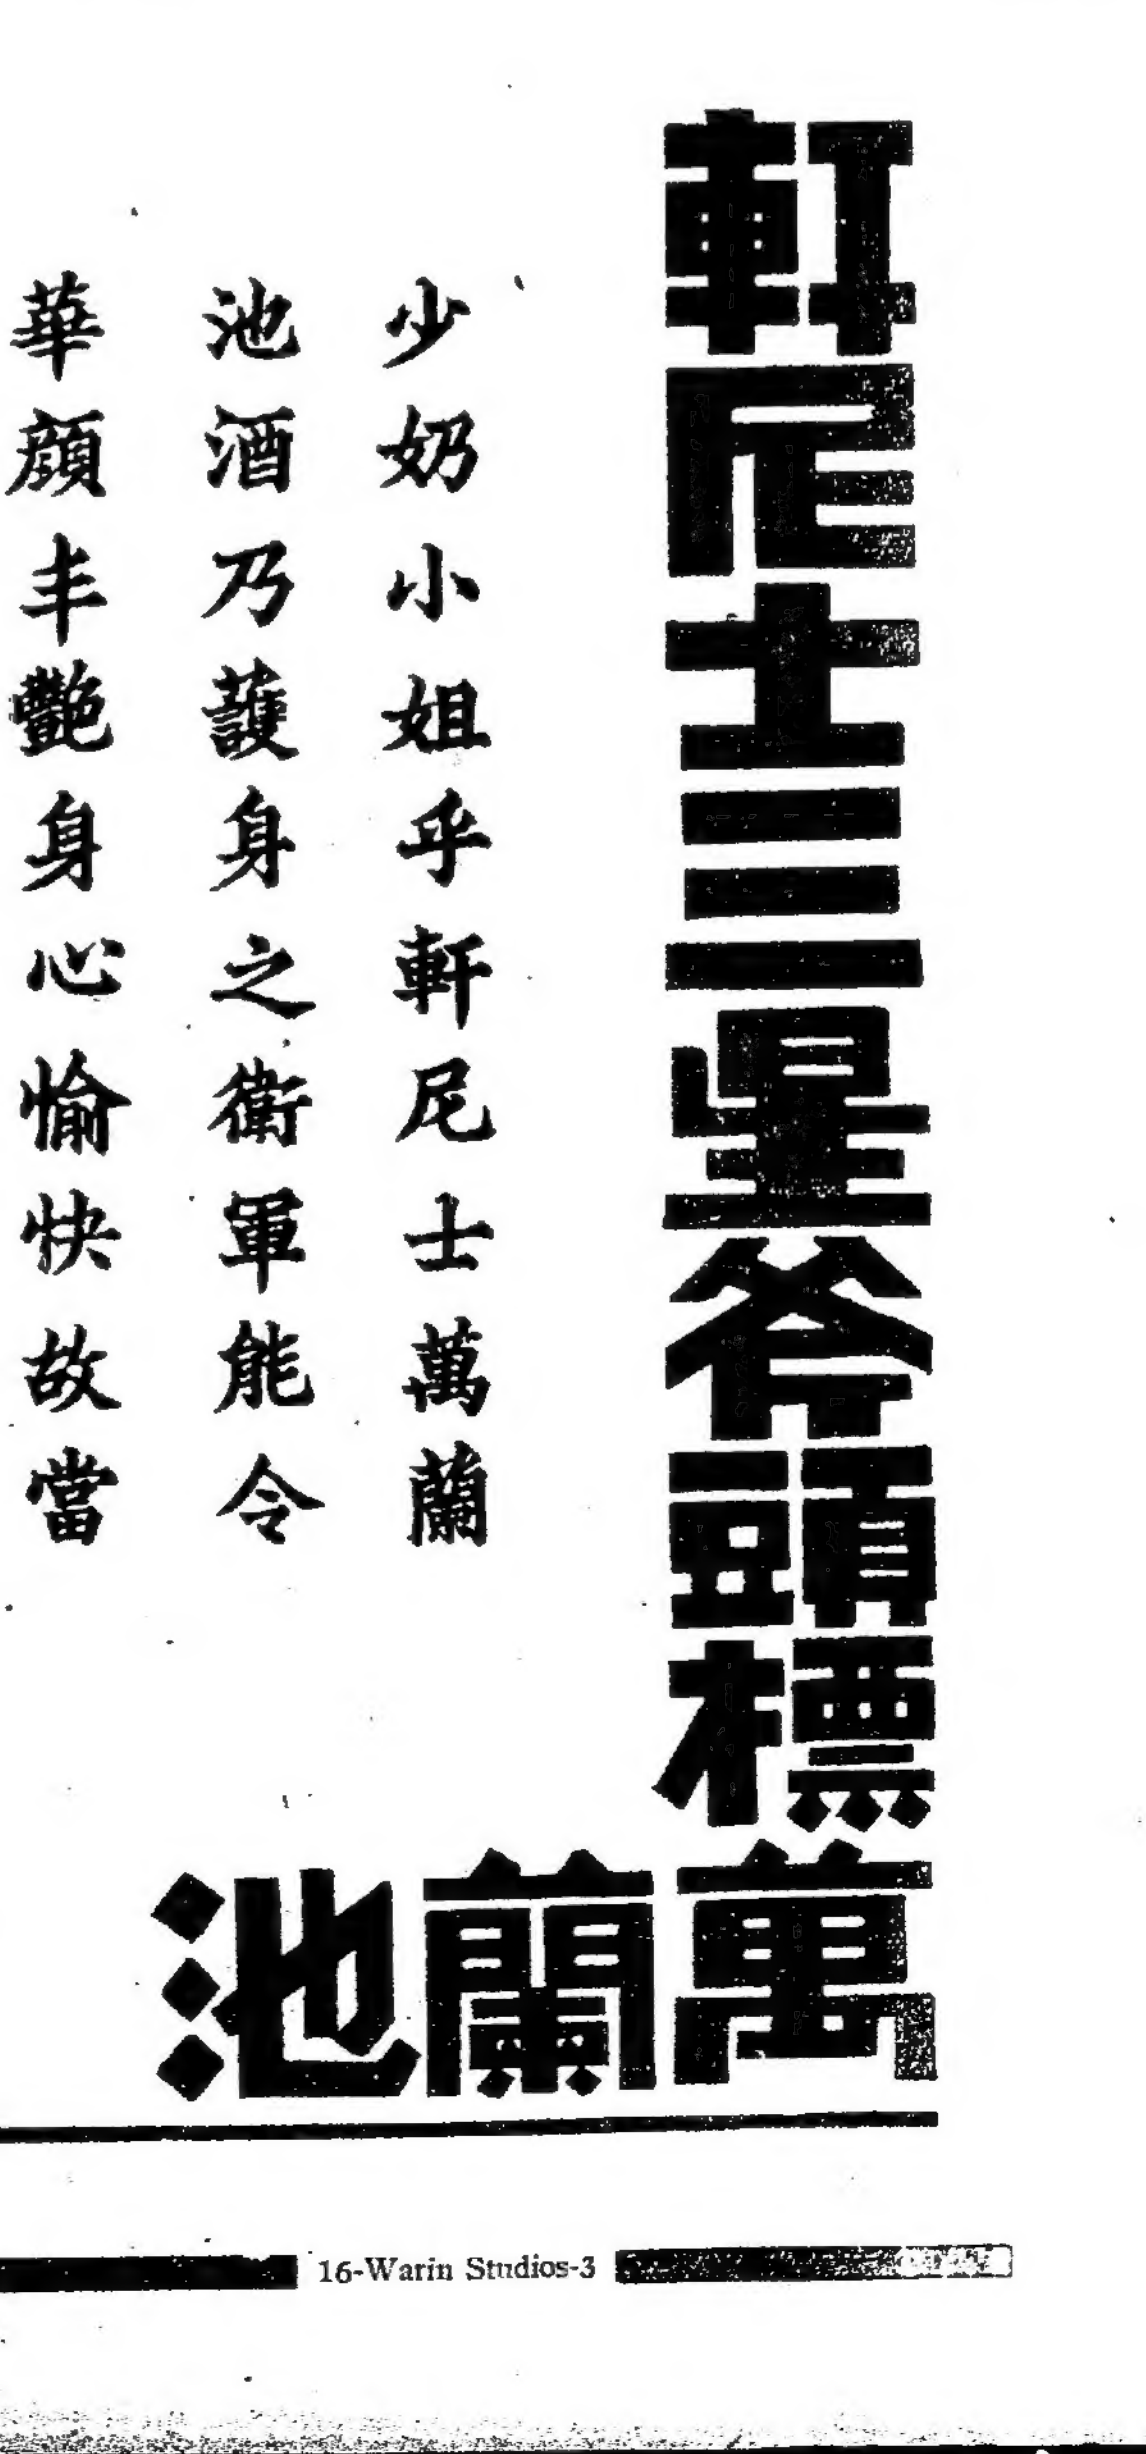 軒尼士三星斧頭標
萬蘭池
少奶小姐乎軒尼士萬蘭
池酒乃護身之衛軍能令
華顏丰艷身心愉快故當
16-Warin Studios-3